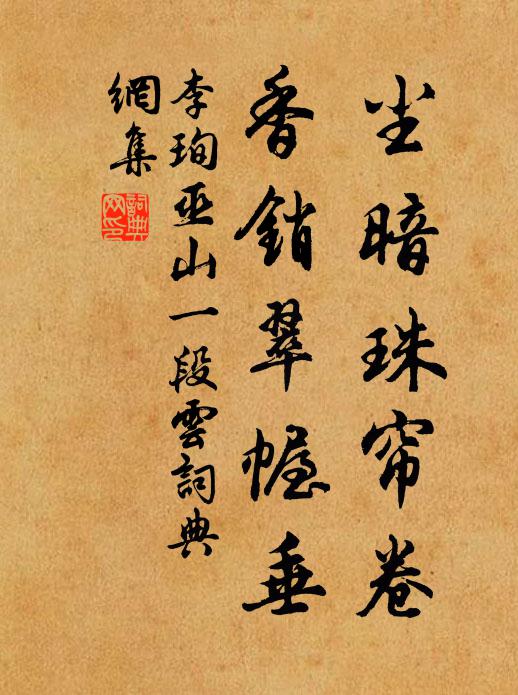 尘暗珠帘卷
香銷翠幄垂
李珣巫山一段雲詞典
網集
詞典网印